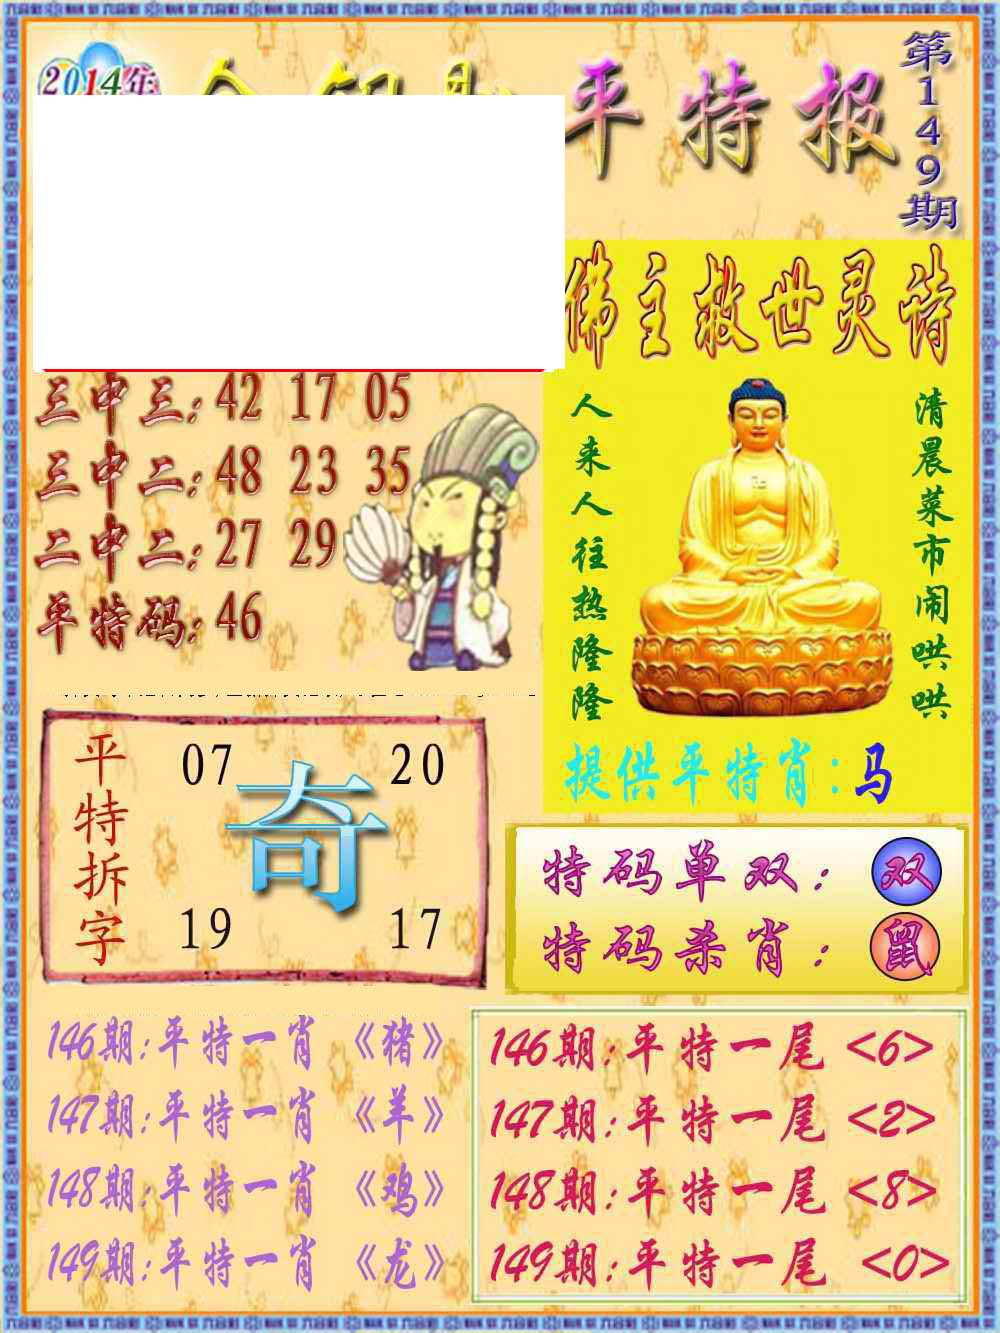 2014年
平特报
第149期
佛主救世灵诗
清晨菜市闹哄哄
人来人往热隆隆
提供平特肖:马
三中三:42 17 05
三中二:48 23 35
二中二:27 29
平特码:46
平特拆字
07 20
奇
19 17
特码单双:双
特码杀肖:鼠
146期:平特一肖《猪》
147期:平特一肖《羊》
148期:平特一肖《鸡》
149期:平特一肖《龙》
146期:平特一尾<6>
147期:平特一尾<2>
148期:平特一尾<8>
149期:平特一尾<0>